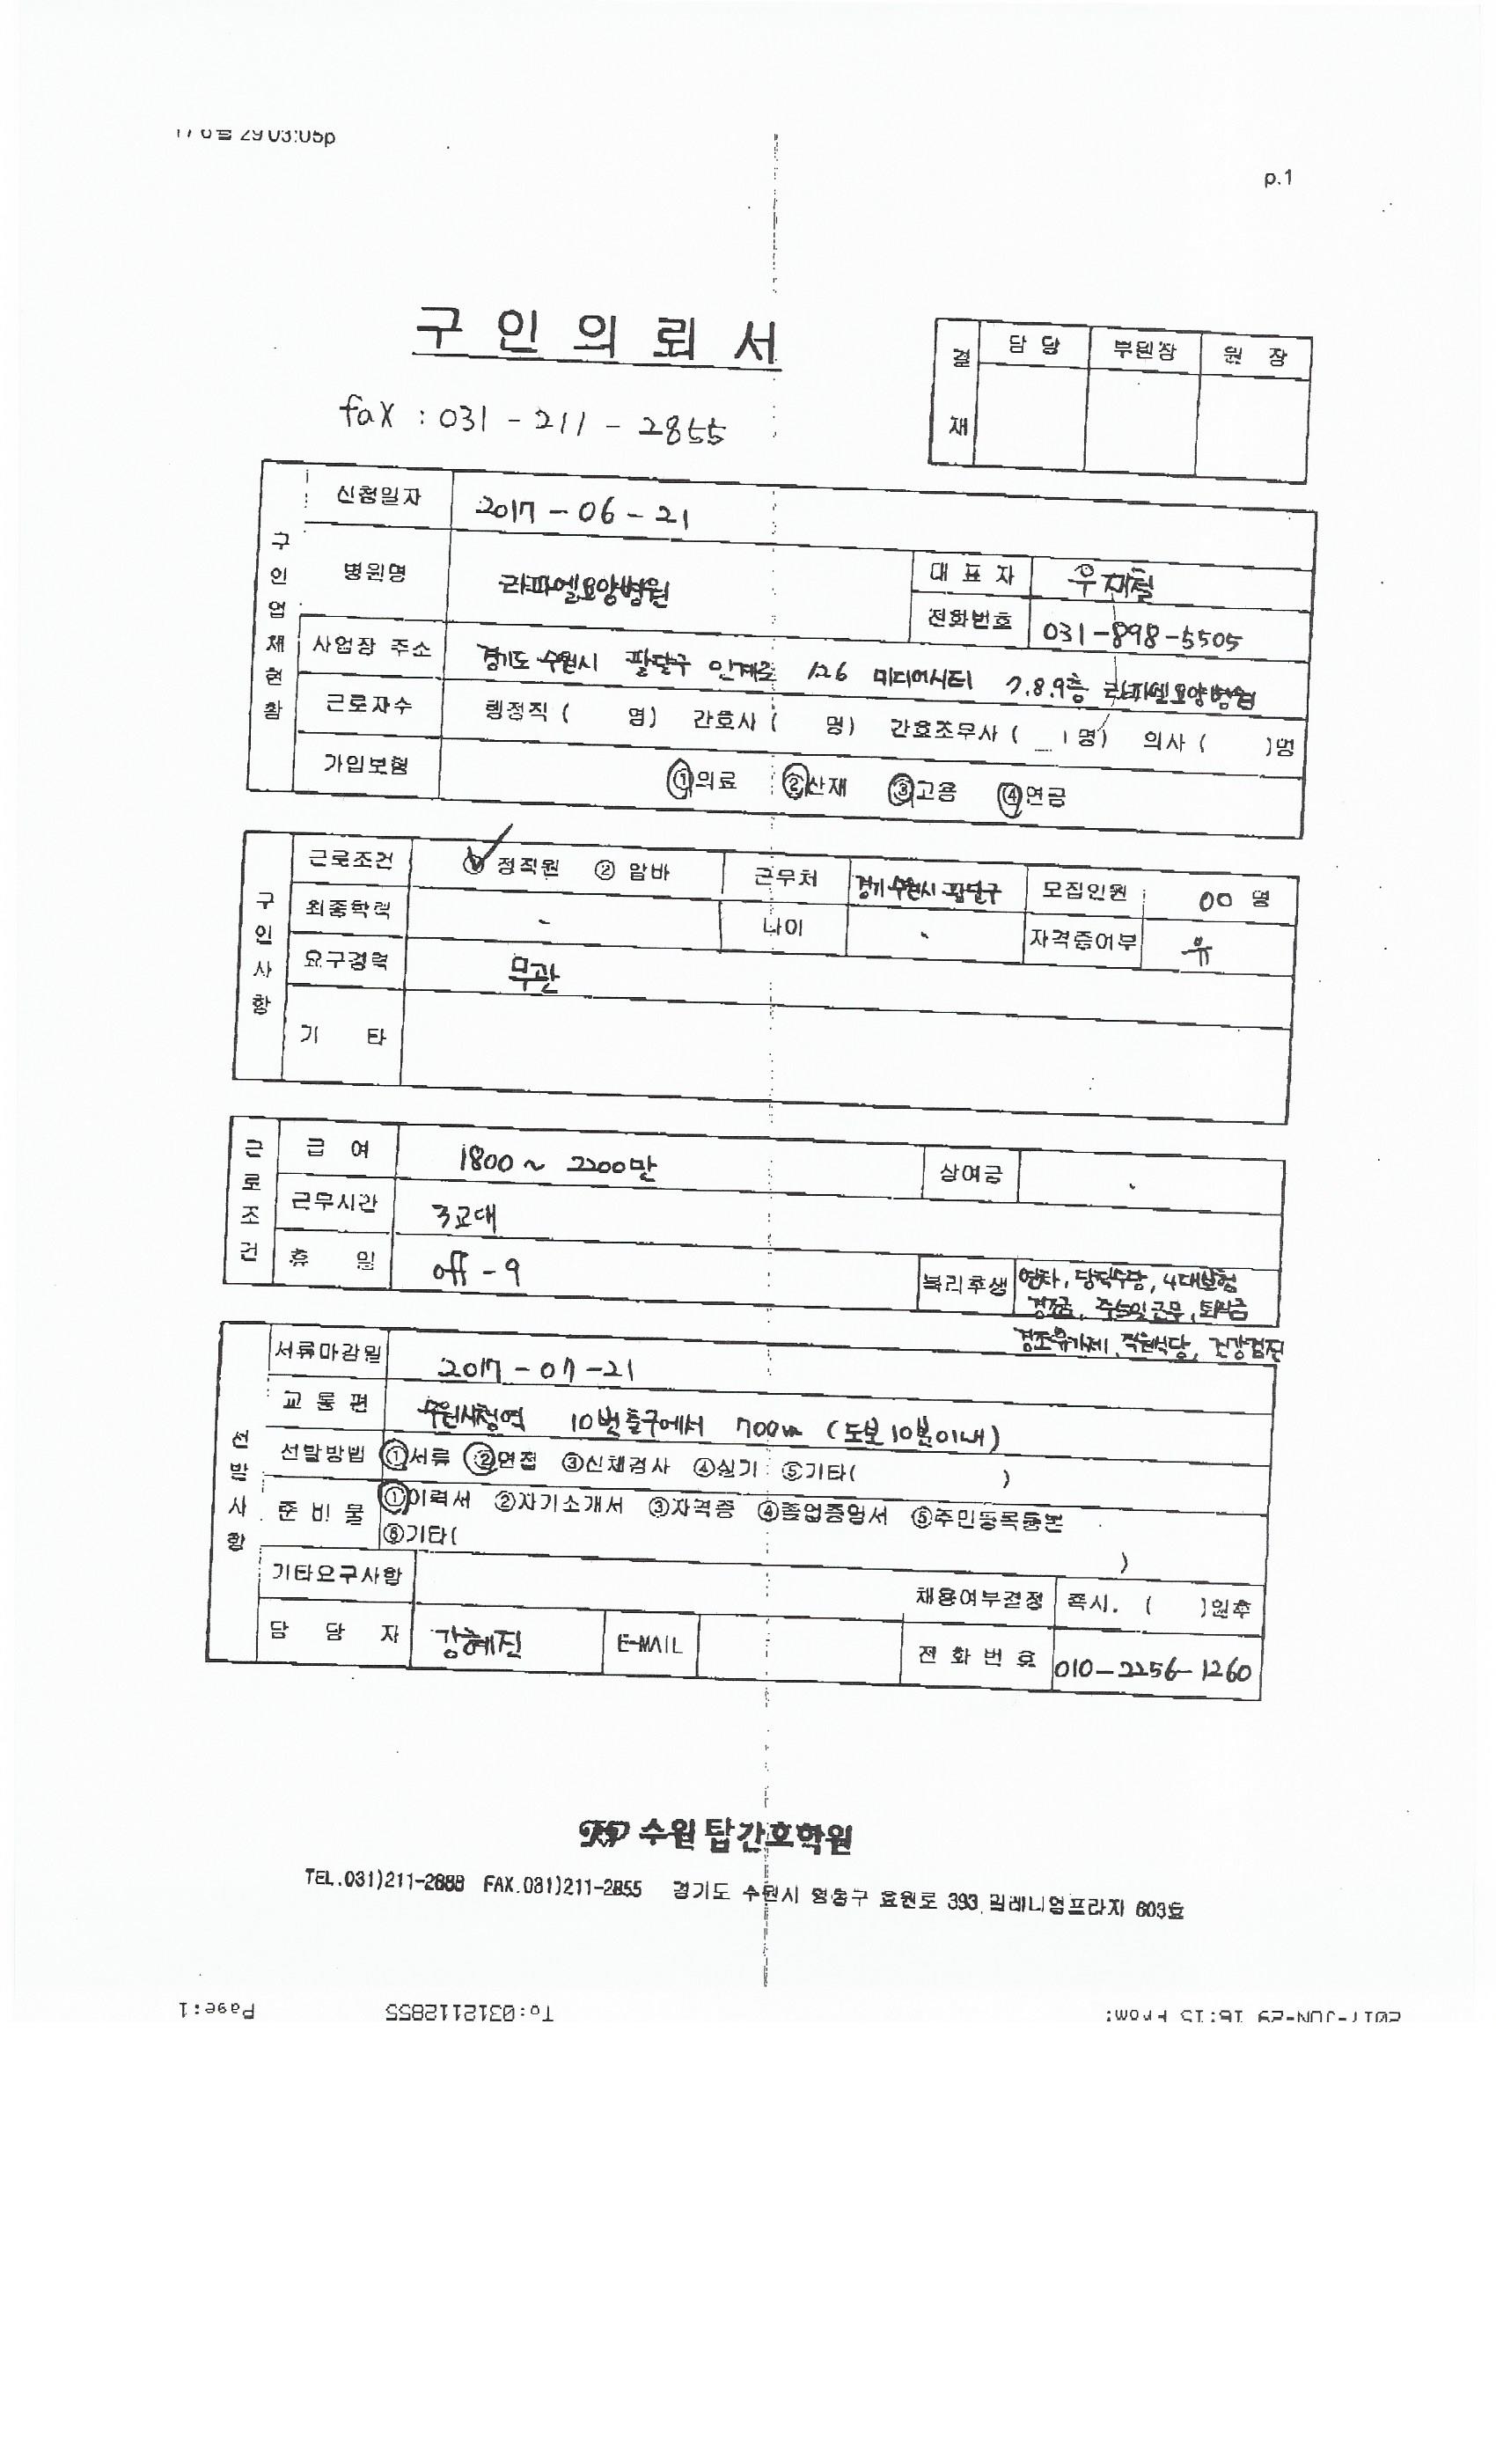 03:05p
p.1
구 인 의 뢰 서
결 재 담 당 부원장 원 장
fax : 031 - 211 - 2855
구인업체현황
신청일자 2017 - 06 - 21
병원명 라파엘요양병원 대 표 자 우재철
전화번호 031-898-5505
사업장 주소 경기도 수원시 팔달구 인계로 126 미디어시티 7.8.9층 라파엘요양병원
근로자수 행정직 ( 명) 간호사 ( 명) 간호조무사 ( 1 명) 의사 ( )명
가입보험 ①의료 ②산재 ③고용 ④연금
구인사항
근로조건 ① 정직원 ② 알바 근무처 경기 수원시 팔달구 모집인원 00 명
최종학력 - 나이 - 자격증여부 유
요구경력 무관
기 타
근로조건
급 여 1800 ~ 2200만 상여금
근무시간 3교대
휴 일 off - 9 복리후생 연차, 당직수당, 4대보험
경조금, 주5일근무, 퇴직금
경조휴가제, 직원식당, 건강검진
선발사항
서류마감일 2017 - 07 - 21
교 통 편 수원시청역 10번출구에서 700m (도보 10분이내)
선발방법 ①서류 ②면접 ③신체검사 ④실기 ⑤기타( )
준 비 물 ①이력서 ②자기소개서 ③자격증 ④졸업증명서 ⑤주민등록등본
⑥기타( )
기타요구사항 채용여부결정 즉시. ( )일후
담 당 자 강혜진 E-MAIL 전 화 번 호 010-2256-1260
수원 탑간호학원
TEL.031)211-2888 FAX.031)211-2855 경기도 수원시 영통구 효원로 393, 밀레니엄프라자 603호
2017-JUN-29 16:15 From: To:0312112855 Page:1